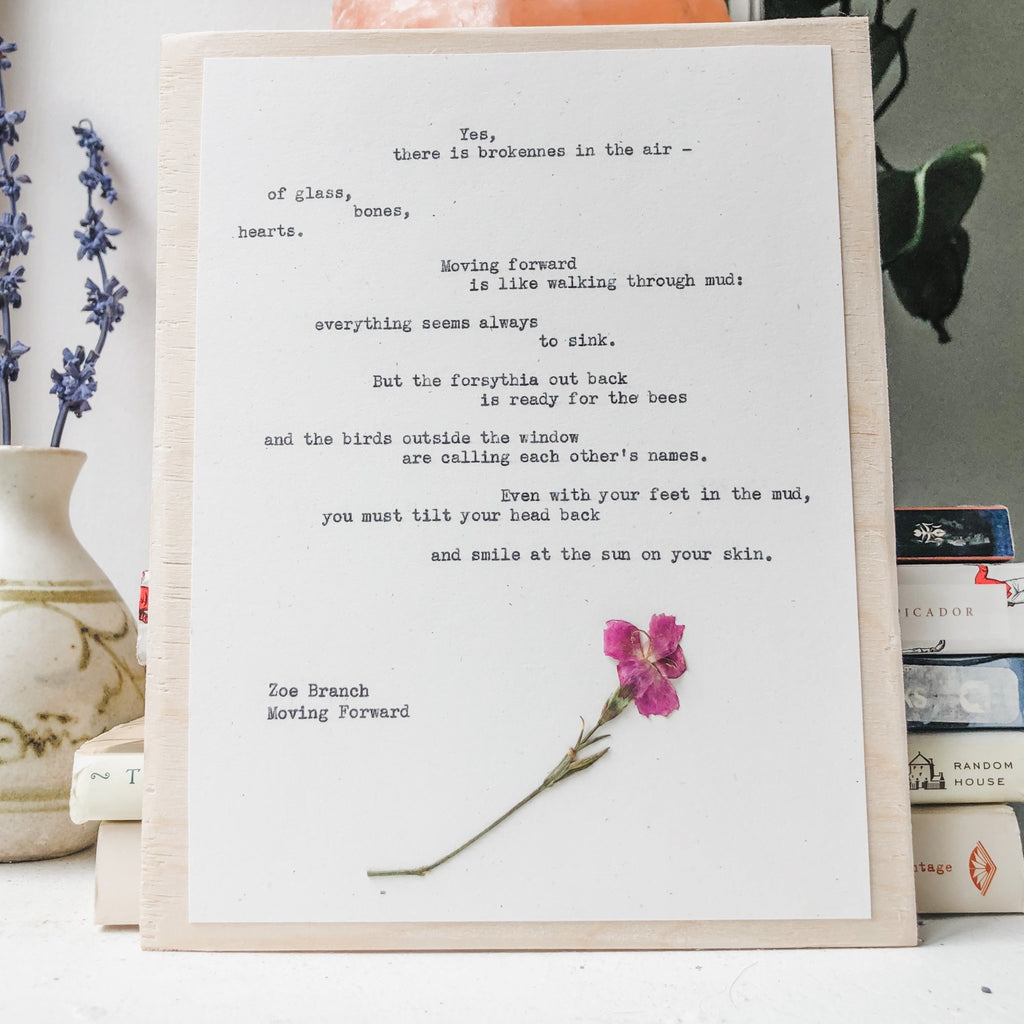 Yes,
there is brokennes in the air –
of glass,
bones,
hearts.
Moving forward
is like walking through mud:
everything seems always
to sink.
But the forsythia out back
is ready for the bees
and the birds outside the window
are calling each other's names.
Even with your feet in the mud,
you must tilt your head back
and smile at the sun on your skin.
Zoe Branch
Moving Forward
PICADOR
RANDOM
HOUSE
T
ntage